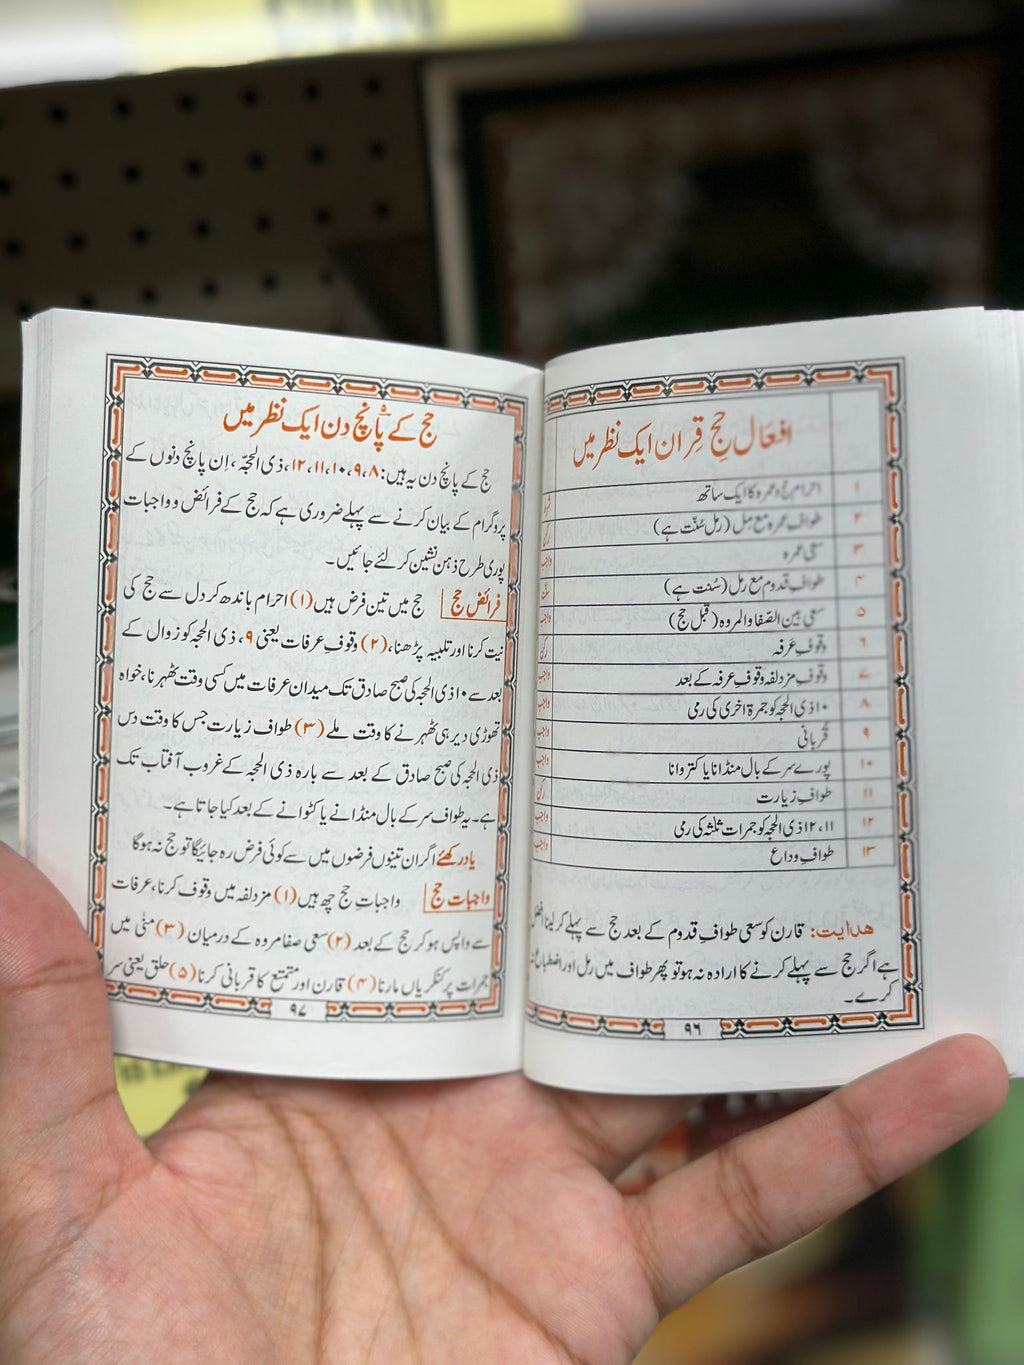 افعال حجِ قِران ایک نظر میں
۱ احرام حج و عمرہ کا ایک ساتھ شرط
۲ طواف عمرہ مع رمل (رمل سُنّت ہے) رکن
۳ سعی عمرہ واجب
۴ طواف قدوم مع رمل (سُنت ہے) سنّت
۵ سعی بین الصّفا والمروہ (قبل حج) واجب
۶ وقوفِ عَرفہ رکن
۷ وقوفِ مزدلفہ وقوفِ عرفہ کے بعد واجب
۸ ۱۰ ذی الحجہ کو جمرۃ اخریٰ کی رمی واجب
۹ قُربانی واجب
۱۰ پورے سر کے بال منڈانا یا کتروانا واجب
۱۱ طوافِ زیارت رکن
۱۲ ۱۱،۱۲ ذی الحجہ کو جمرات ثلثہ کی رمی واجب
۱۳ طوافِ وداع واجب
ھدایت: قارن کو سعی طوافِ قدوم کے بعد حج سے پہلے کر لینا افضل
ہے اگر حج سے پہلے کرنے کا ارادہ نہ ہو تو پھر طواف میں رمل اور اضطباع نہ
کرے۔
۹۶
حج کے پانچ دِن ایک نظر میں
حج کے پانچ دن یہ ہیں: ۸، ۹، ۱۰، ۱۱، ۱۲، ذی الحجّہ، اِن پانچ دنوں کے
پروگرام کے بیان کرنے سے پہلے ضروری ہے کہ حج کے فرائض و واجبات
پوری طرح ذہن نشین کر لئے جائیں۔
فرائضِ حج حج میں تین فرض ہیں (۱) احرام باندھ کر دل سے حج کی
نیت کرنا اور تلبیہ پڑھنا، (۲) وقوفِ عرفات یعنی ۹، ذی الحجہ کو زوال کے
بعد سے ۱۰ ذی الحجہ کی صبح صادق تک میدان عرفات میں کسی وقت ٹھہرنا، خواہ
تھوڑی دیر ہی ٹھہرنے کا وقت ملے (۳) طواف زیارت جس کا وقت دس
ذی الحجہ کی صبح صادق کے بعد سے بارہ ذی الحجہ کے غروب آفتاب تک
ہے۔ یہ طواف سر کے بال منڈانے یا کٹوانے کے بعد کیا جاتا ہے۔
یاد رکھئے اگر ان تینوں فرضوں میں سے کوئی فرض رہ جائیگا تو حج نہ ہوگا
واجبات حج واجباتِ حج چھ ہیں (۱) مزدلفہ میں وقوف کرنا، عرفات
سے واپس ہو کر حج کے بعد (۲) سعی صفا مروہ کے درمیان (۳) منیٰ میں
جمرات پر کنکریاں مارنا (۴) قارن اور متمتع کا قربانی کرنا (۵) حلق یعنی سر
۹۷